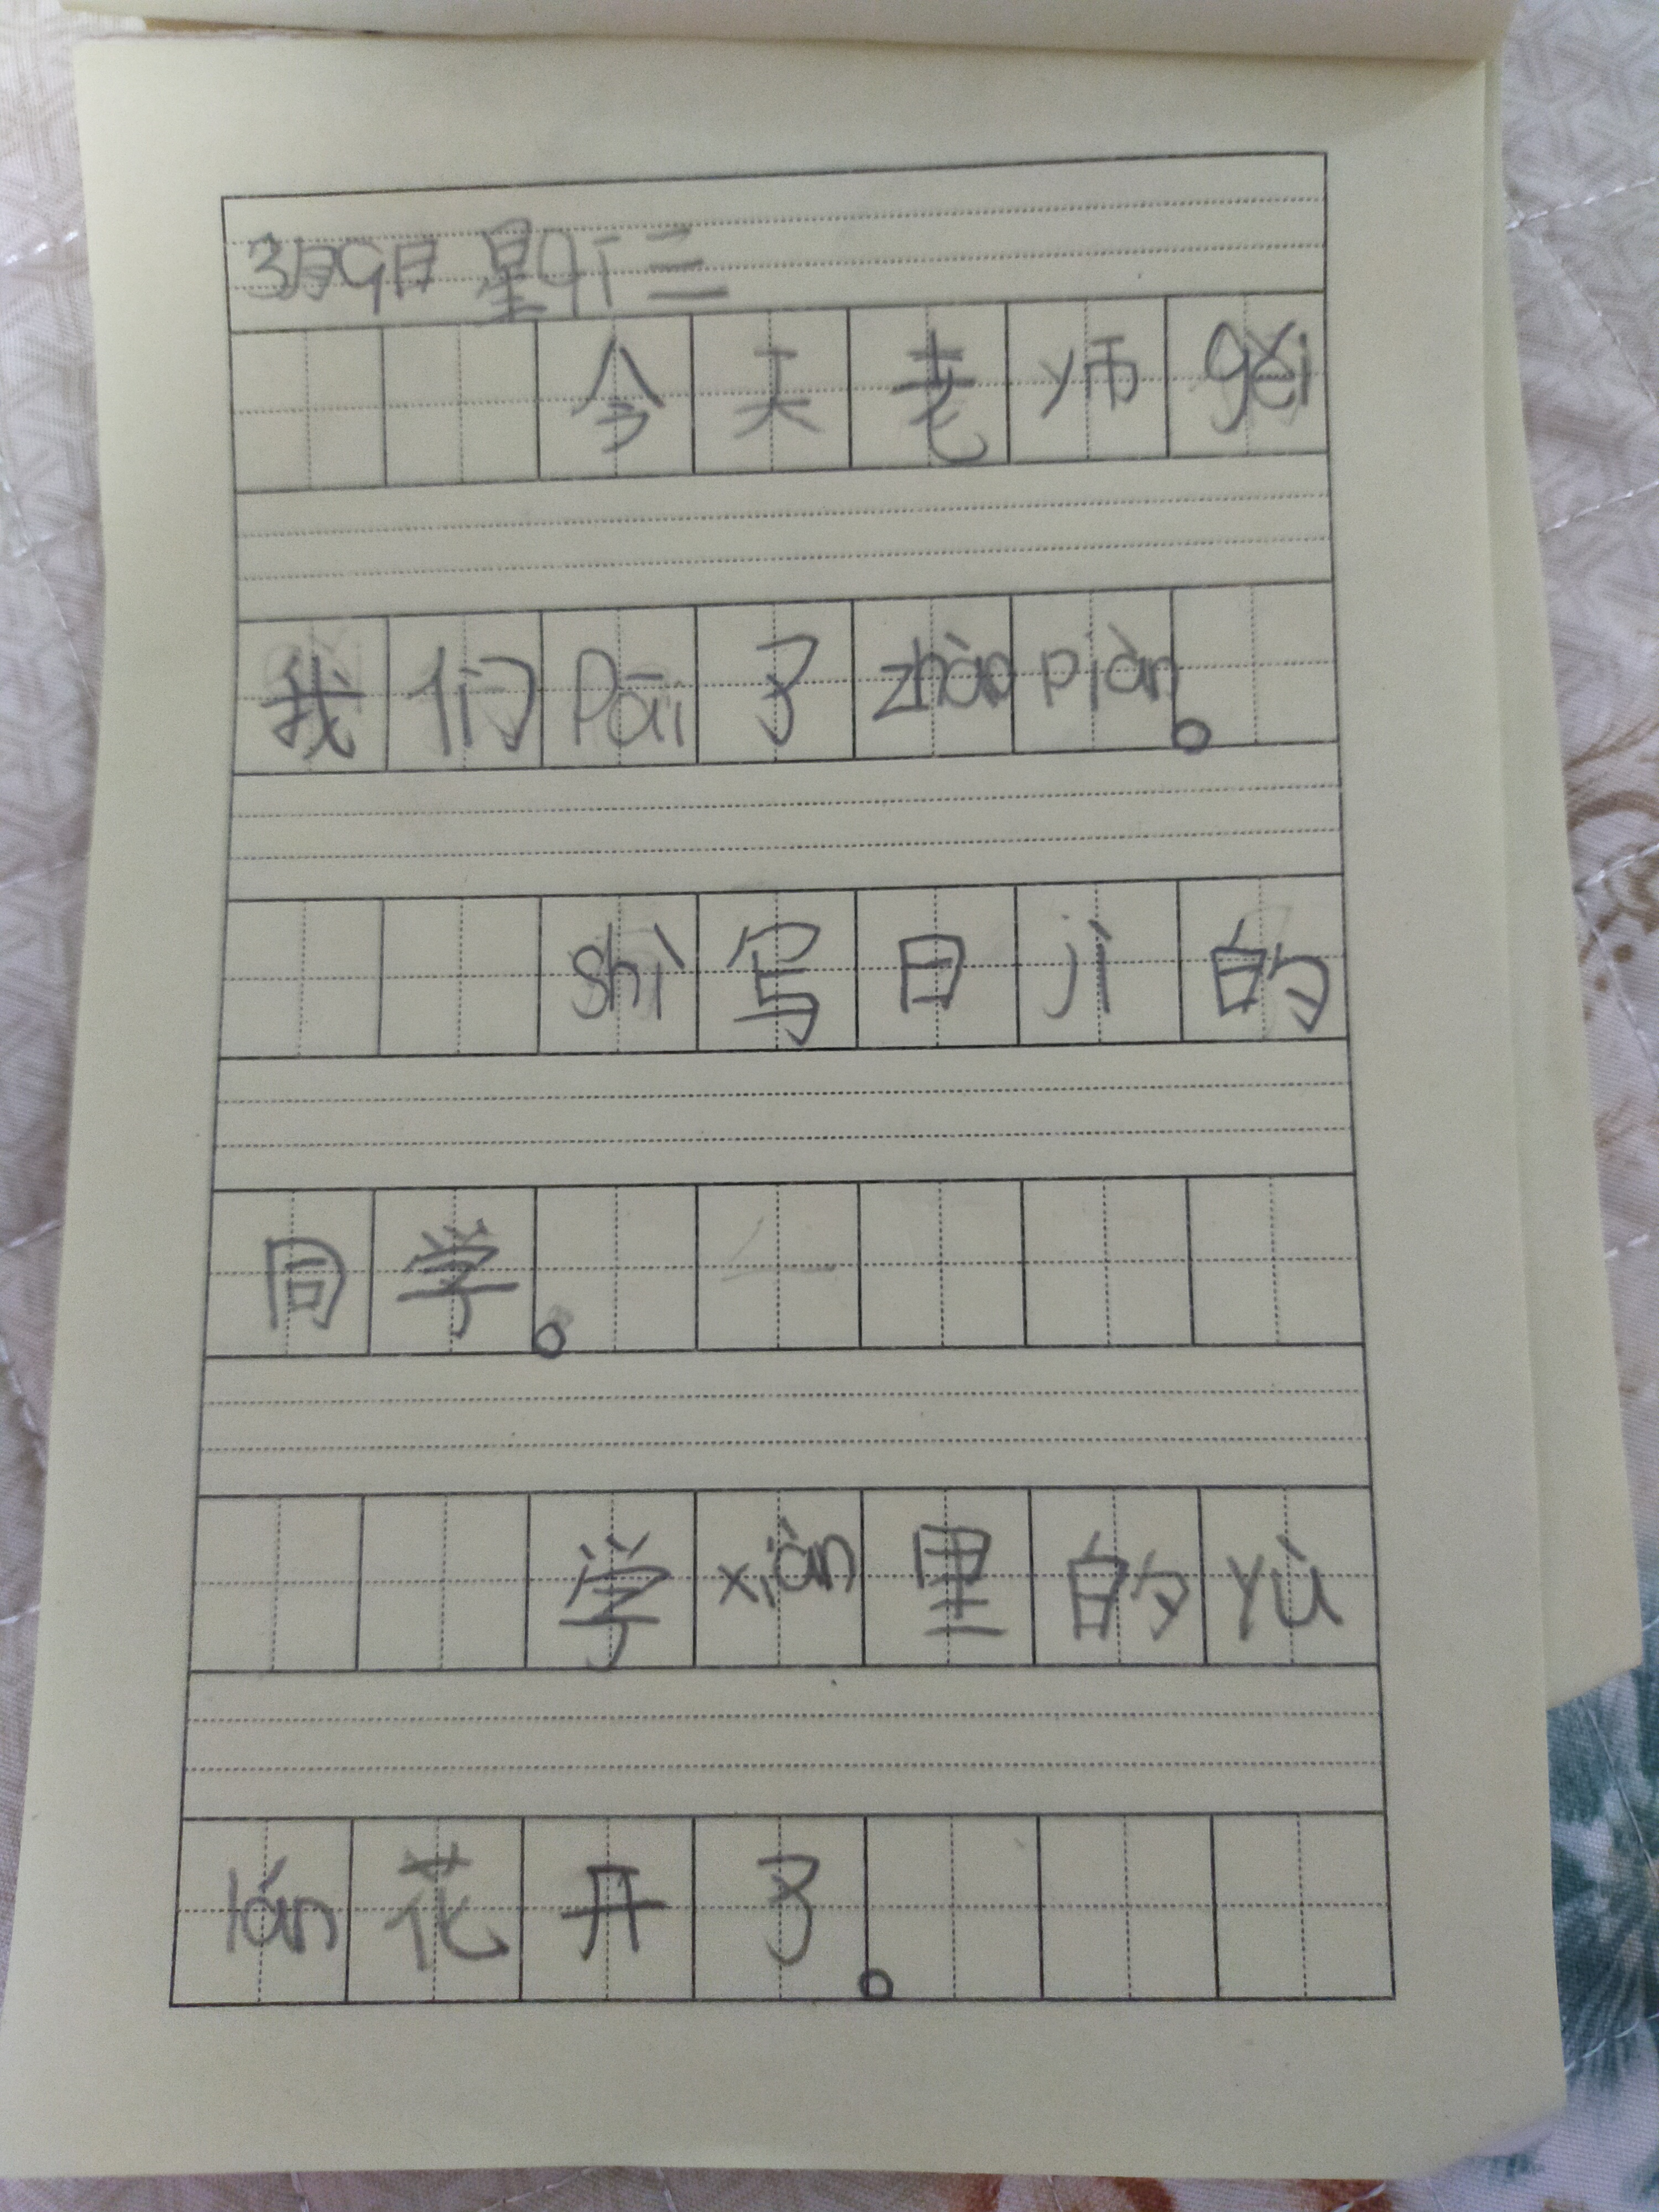 3月9日 星qī三
今天老师gěi
我们Pāi了zhào piàn。
shì写日jì的
同学。
学xiàn里的yù
lán花开了。